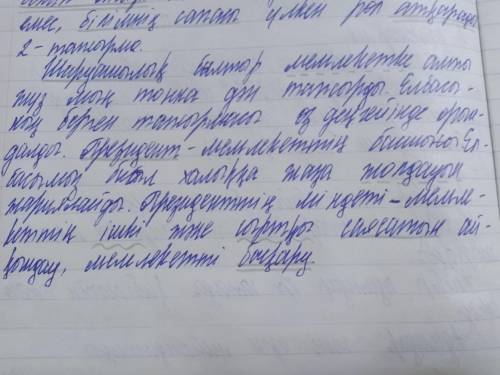 емес, білімнің сапасы үлкен рөл атқарады
2-тапсырма.
Шаруашылық былтыр мемлекетке алты
жүз мың тонна дән тапсырды. Елбасы-
ның берген тапсырмасы өз деңгейінде орын-
далды. Президент-мемлекеттің басшысы. Ел-
басымыз биыл халыққа жаңа жолдауын
жариялайды. Президенттің міндеті - мемле-
кеттің ішкі және сыртқы саясатын ай-
қындау, мемлекетті басқару.